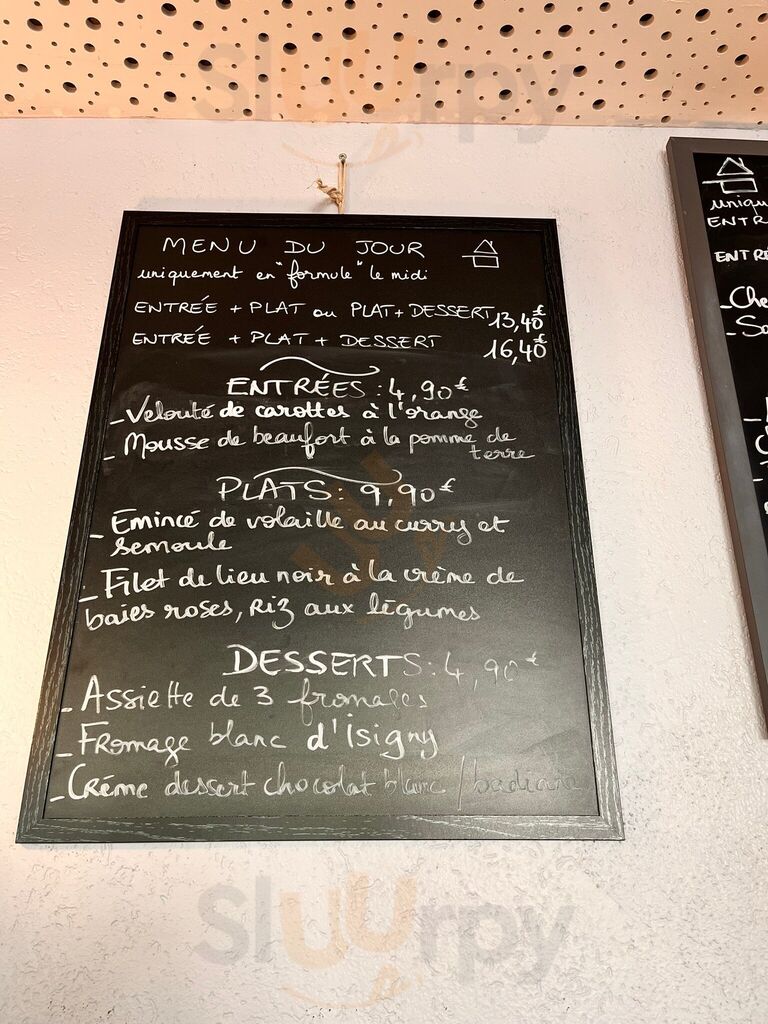 sluurpy
MENU DU JOUR
uniquement en "formule" le midi
ENTRÉE + PLAT ou PLAT + DESSERT 13,40€
ENTRÉE + PLAT + DESSERT 16,40€
ENTRÉES : 4,90€
- Velouté de carottes à l'orange
- Mousse de beaufort à la pomme de
terre
PLATS : 9,90€
- Emincé de volaille au curry et
semoule
- Filet de lieu noir à la crème de
baies roses, Riz aux légumes
DESSERTS : 4,90€
- Assiette de 3 fromages
- Fromage blanc d'Isigny
- Crème dessert chocolat blanc / badiane
uniqu
ENTR
ENTRÉ
- Che
- Sa
sluurpy